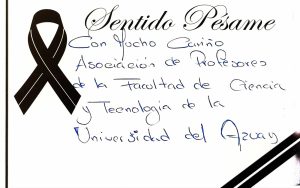 Sentido Pésame
Con Mucho Cariño
Asociación de Profesores
de la Facultad de Ciencia
y Tecnología de la
Universidad del Azuay